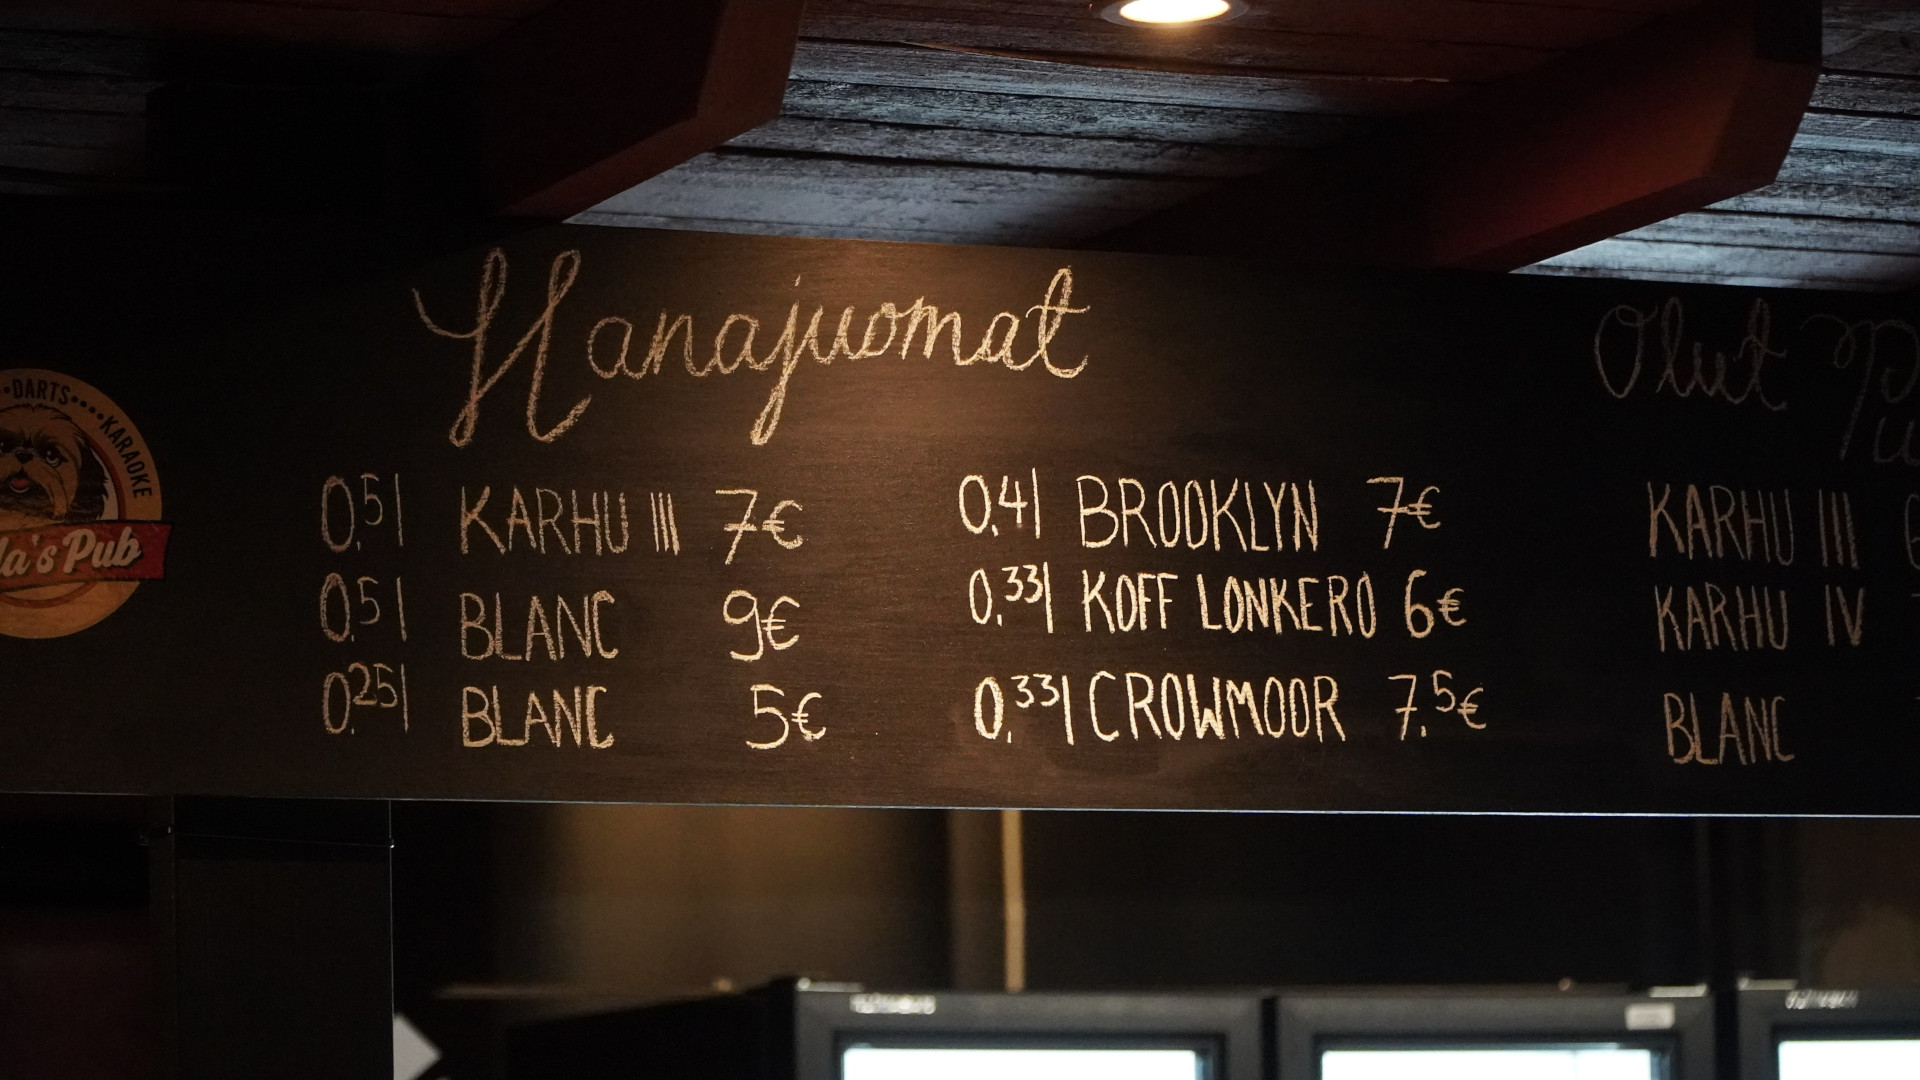 DARTS
KARAOKE
la's Pub
Hanajuomat
0,5l KARHU III 7€
0,5l BLANC 9€
0,25l BLANC 5€
0,4l BROOKLYN 7€
0,33l KOFF LONKERO 6€
0,33l CROWMOOR 7,5€
Olut
KARHU III
KARHU IV
BLANC